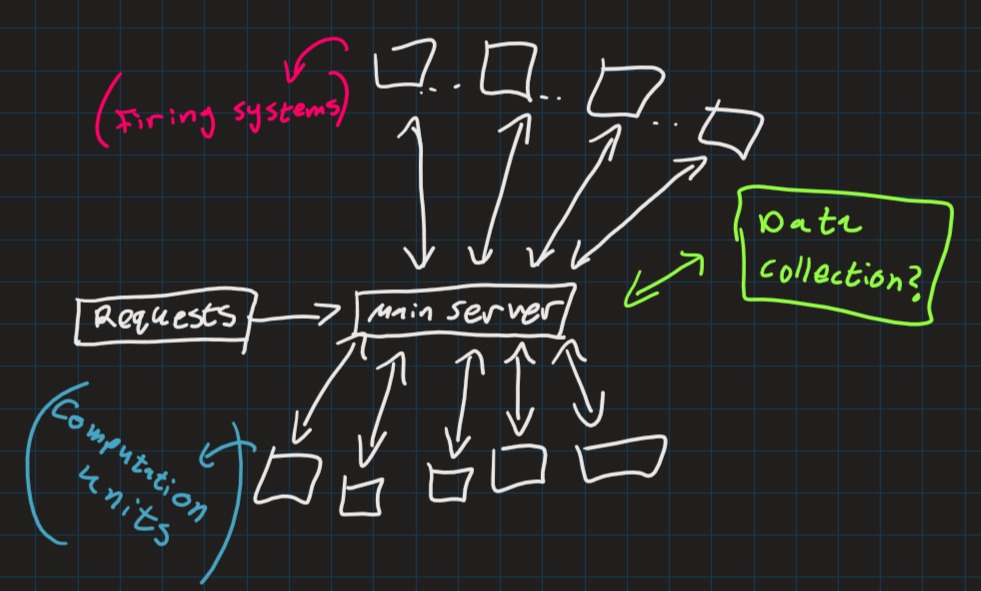 (Firing systems)
Data
collection?
Requests
main server
(Computation
units)